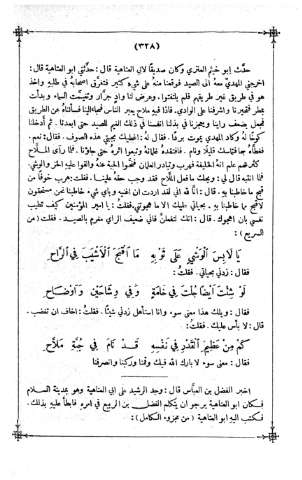 (٣٢٨)
حدَّث ابو خيثم العنزي وكان صديقًا لابي العتاهية قال: حدَّثني ابو العتاهية قال:
اخرجني المهديّ معهُ الى الصيد فوقعنا منهُ على شيء كثير فتفرَّق اصحابهُ في طلبهِ واخذ
هو في طريق غير طريقهم فلم يلتقوا. وعرض لنا وادٍ جرَّار وتغيَّمت السماء وبدأت
بمطر فتحيَّرنا واشرفنا على الوادي. فاذا فيهِ ملَّاح يعبر الناس فلجأنا اليهِ فسألناهُ عن الطريق
فجعل يضعف رأينا ويعجزنا في بذلنا انفسنا في ذلك الغيم للصيد حتى ابعدنا. ثم أدخلنا
كوخًا لهُ وكاد المهدي يموت بردًا. فقال لهُ: اغطّيك بجبَّتي هذه الصوف. فقال: نعم.
فغطَّاهُ بها فتماسك قليلًا ونام. فافتقدهُ غلمانهُ وتبعوا اثرهُ حتى جاؤونا. فلما رأى الملَّاح
كثرتهم علم انهُ الخليفة فهرب وتبادر الغلمان فنحَّوا الجبَّة عنهُ والقوا عليهِ الخزّ والوشي.
فلما انتبه قال لي: ويحك ما فعل الملَّاح فقد وجب حقهُ علينا. فقلت: هرب خوفًا من
قبح ما خاطبنا بهِ. قال: انَّا لله اني لقد اردت ان اغنيهُ وباي شيء خاطبنا نحن مستحقون
لاقبح مما خاطبنا بهِ. بحياتي عليك الا ما هجوتني. فقلت: يا امير المؤمنين كيف تطيب
نفسي بان اهجوك. قال: انك لتفعلنَّ فاني ضعيف الراي مغرم بالصيد. فقلت (من
السريع):
يَا لَابِسَ الْوَشْيِ عَلَى ثَوْبِهِ مَا أَقْبَحَ الْأَشْيَبَ فِي الرَّاحِ
فقال: زدني بحياتي. فقلتُ:
لَوْ شِئْتَ أَيْضًا جُلْتَ فِي خَامَةٍ وَفِي وِشَاحَيْنِ وَأَوْضَاحِ
قال: ويلك هذا معنى سوء وانا استأهل زدني شيئًا. فقلتُ: اخاف ان تغضب.
قال: لا بأس عليك. فقلت:
كَمْ مِنْ عَظِيمِ الْقَدْرِ فِي نَفْسِهِ قَدْ نَامَ فِي جُبَّةِ مَلَّاحِ
قال: معنى سوء لا بارك الله فيك وقمنا وركبنا وانصرفنا
اخبر الفضل بن العباس قال: وجد الرشيد على ابي العتاهية وهو بمدينة السلام
فكان ابو العتاهية يرجو ان يتكلم الفضل بن الربيع في امرهِ فابطأ عليهِ بذلك.
فكتب اليهِ ابو العتاهية (من مجزوء الكامل):